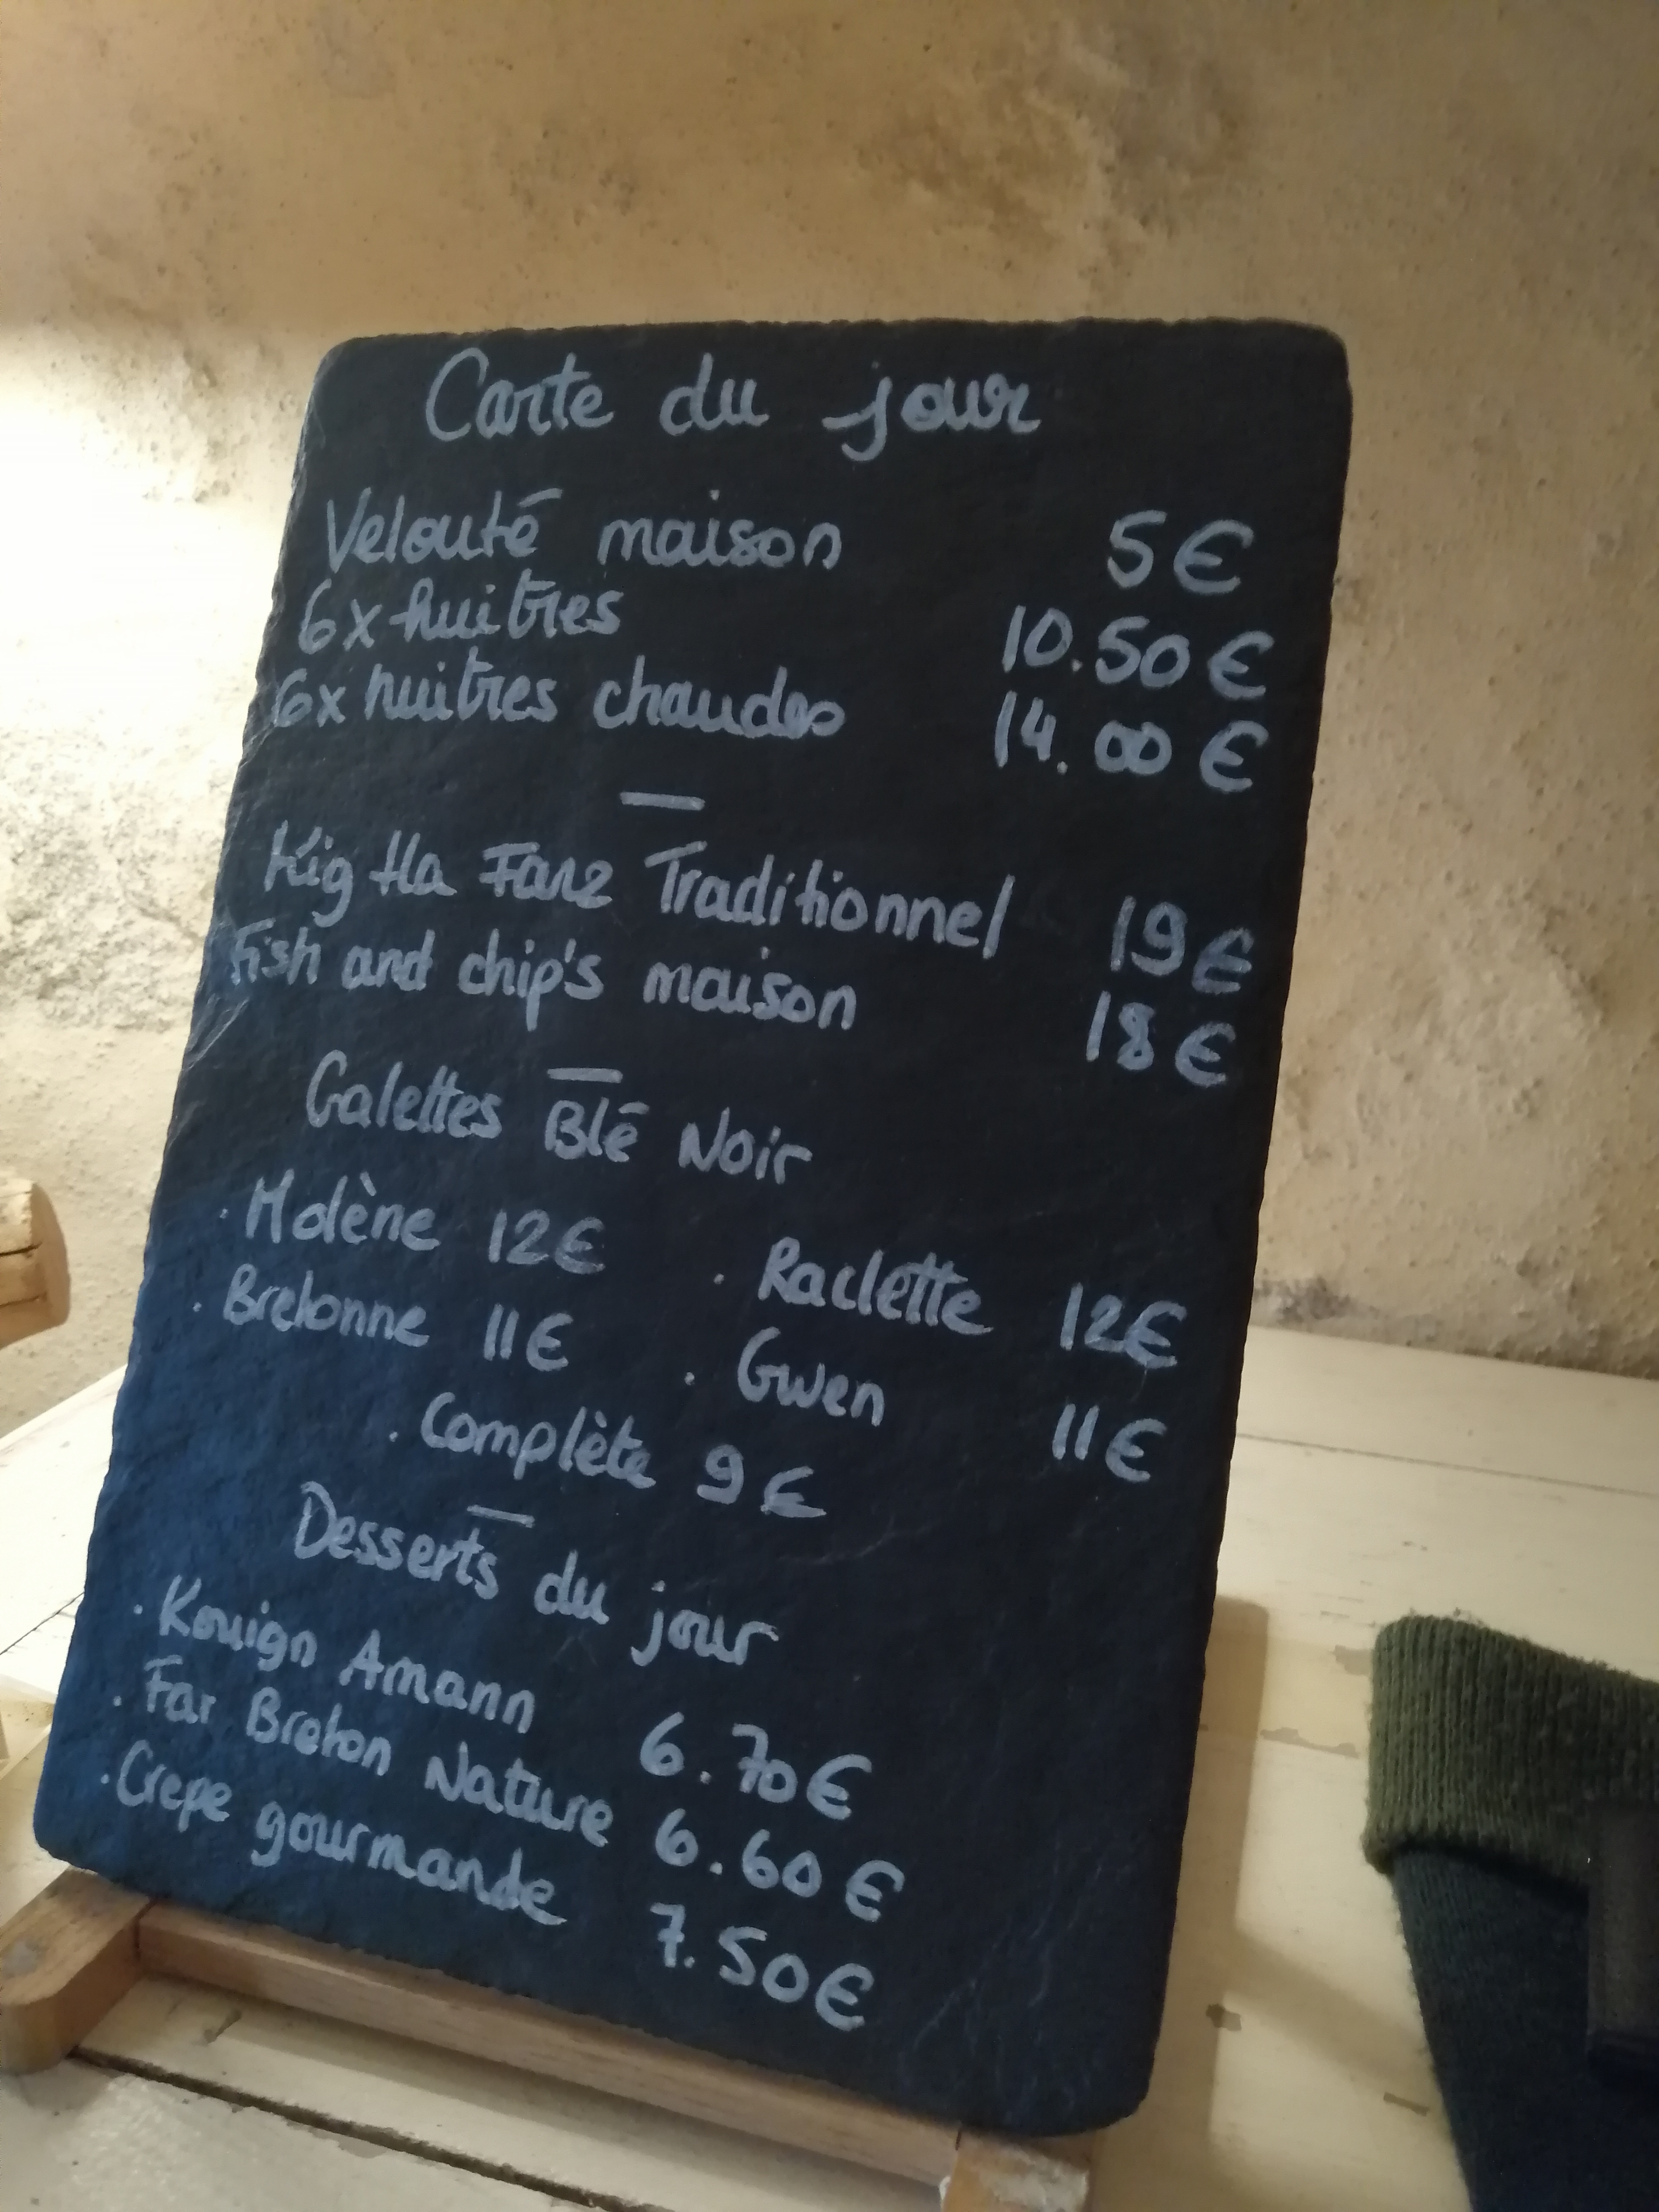 Carte du jour
Velouté maison 5€
6x huitres 10.50€
6x huitres chaudes 14.00€
—
Kig Ha Farz Traditionnel 19€
Fish and chip's maison 18€
—
Galettes Blé Noir
. Molène 12€ . Raclette 12€
. Bretonne 11€ . Gwen 11€
. Complète 9€
—
Desserts du jour
. Kouign Amann 6.70€
. Far Breton Nature 6.60€
. Crepe gourmande 7.50€